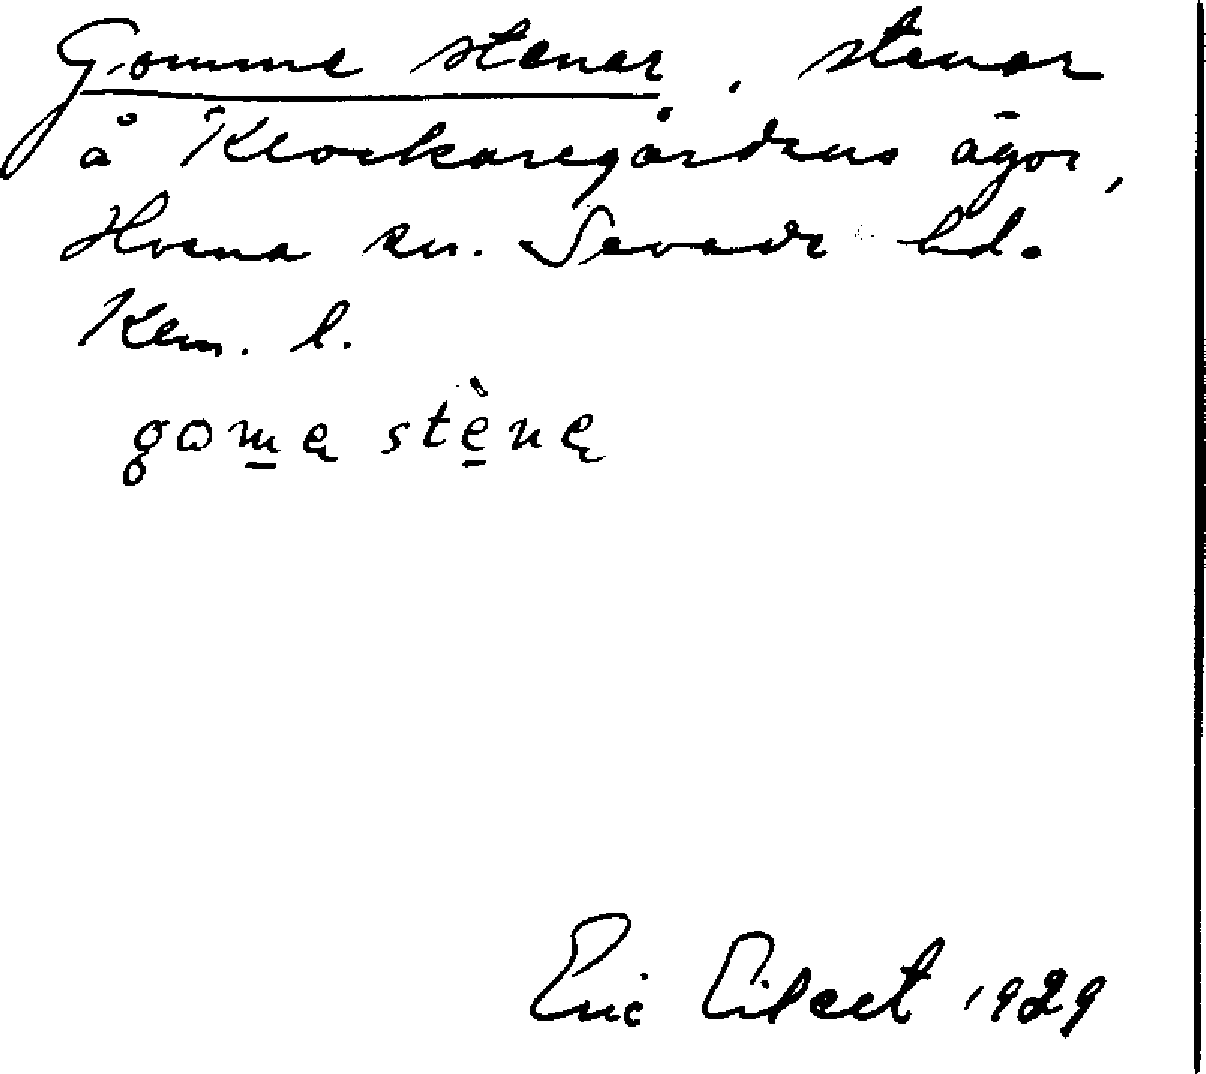 Gomme stenar, stenar
å Klockaregårdens ägor,
Hvena sn. Sevede hd.
Klm. l.
gomę stènę
Eric Eilert 1929